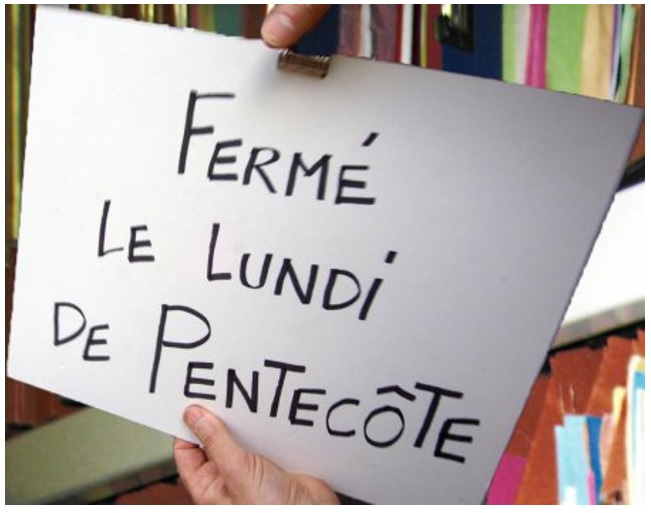 FERMÉ
LE LUNDI
DE PENTECÔTE